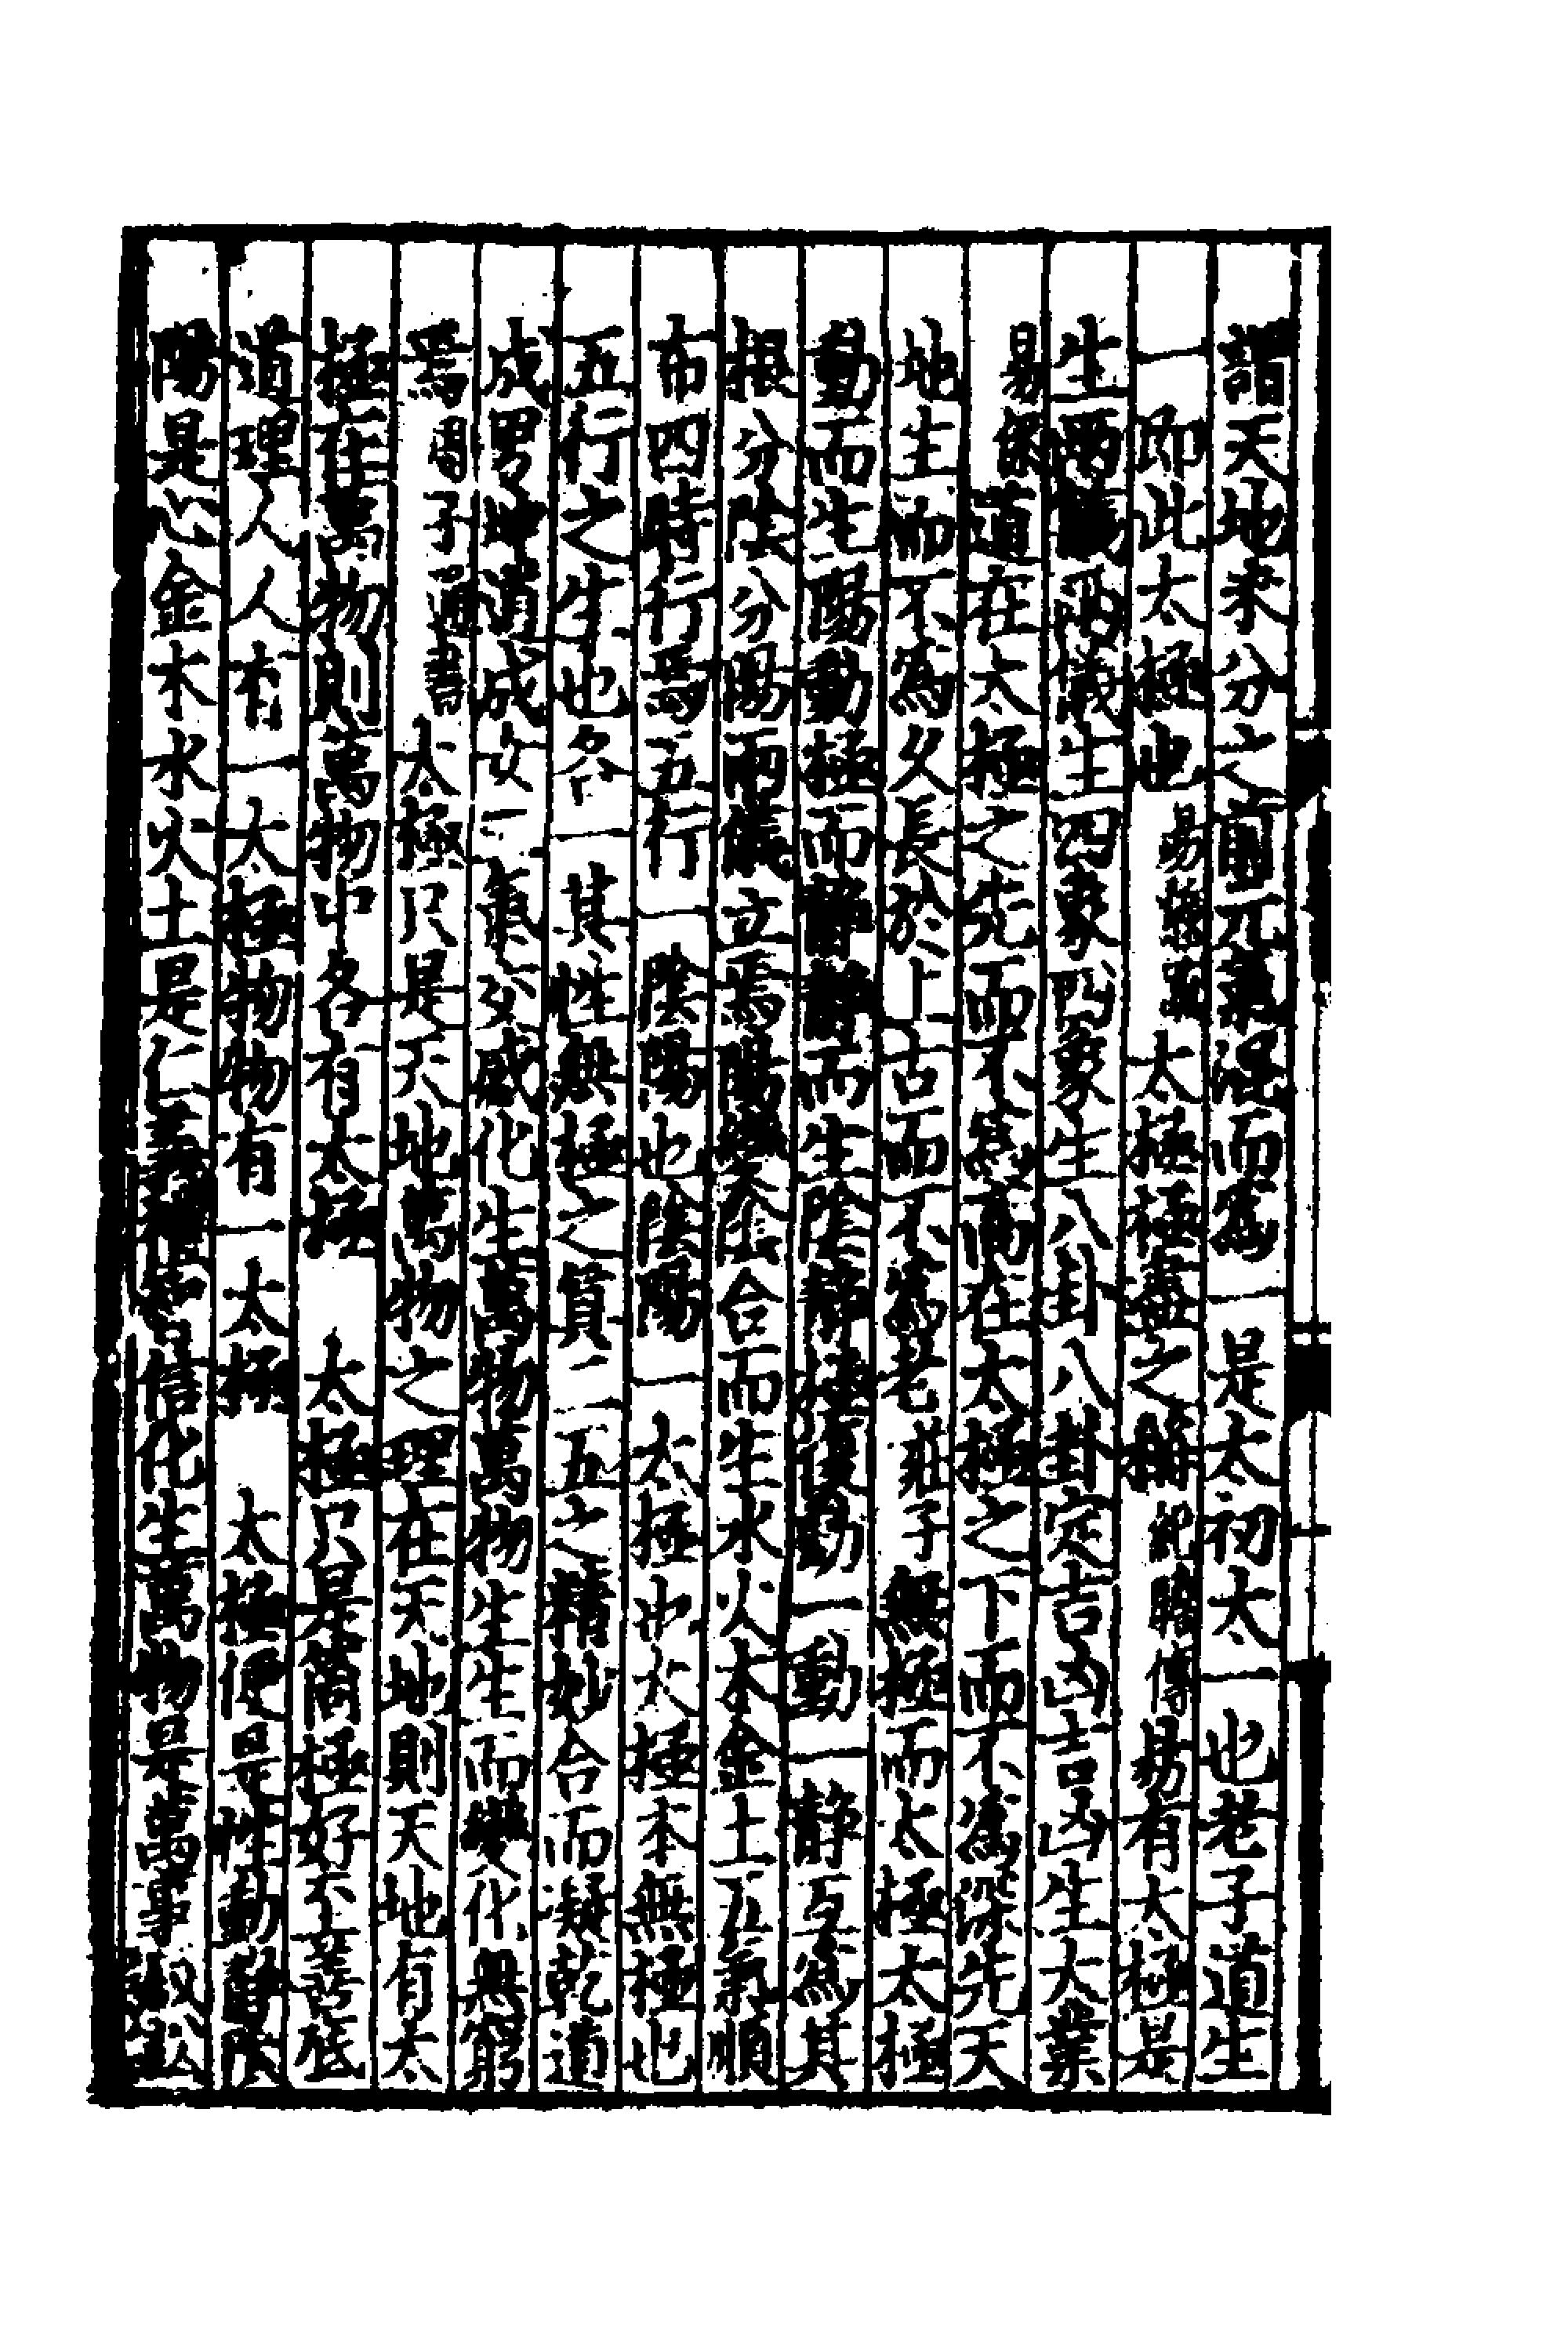 謂天地未分之前元氣混而爲一是太初太一也老子道生
一即此太極也易䟽太極極盡之稱紀瞻傳易有太極是
生兩儀兩儀生四象四象生八卦八卦定吉凶吉凶生大業
易繫道在太極之先而不爲高在太極之下而不爲深先天
地生而不爲久長於上古而不爲老莊子無極而太極太極
動而生陽動極而静静而生陰静極復動一動一静互爲其
根分陰分陽兩儀立焉陽變陰合而生水火木金土五氣順
布四時行焉五行一陰陽也陰陽一太極也太極本無極也
五行之生也各一其性無極之質二五之精妙合而凝乾道
成男坤道成女二氣交感化生萬物萬物生生而變化無窮
焉周子通書太極只是天地萬物之理在天地則天地有太
極在萬物則萬物中各有太極 太極只是箇極好至善底
道理人人有一太極物物有一太極 太極便是性動静陰
陽是心金木水火土是仁義禮智信化生萬物是萬事